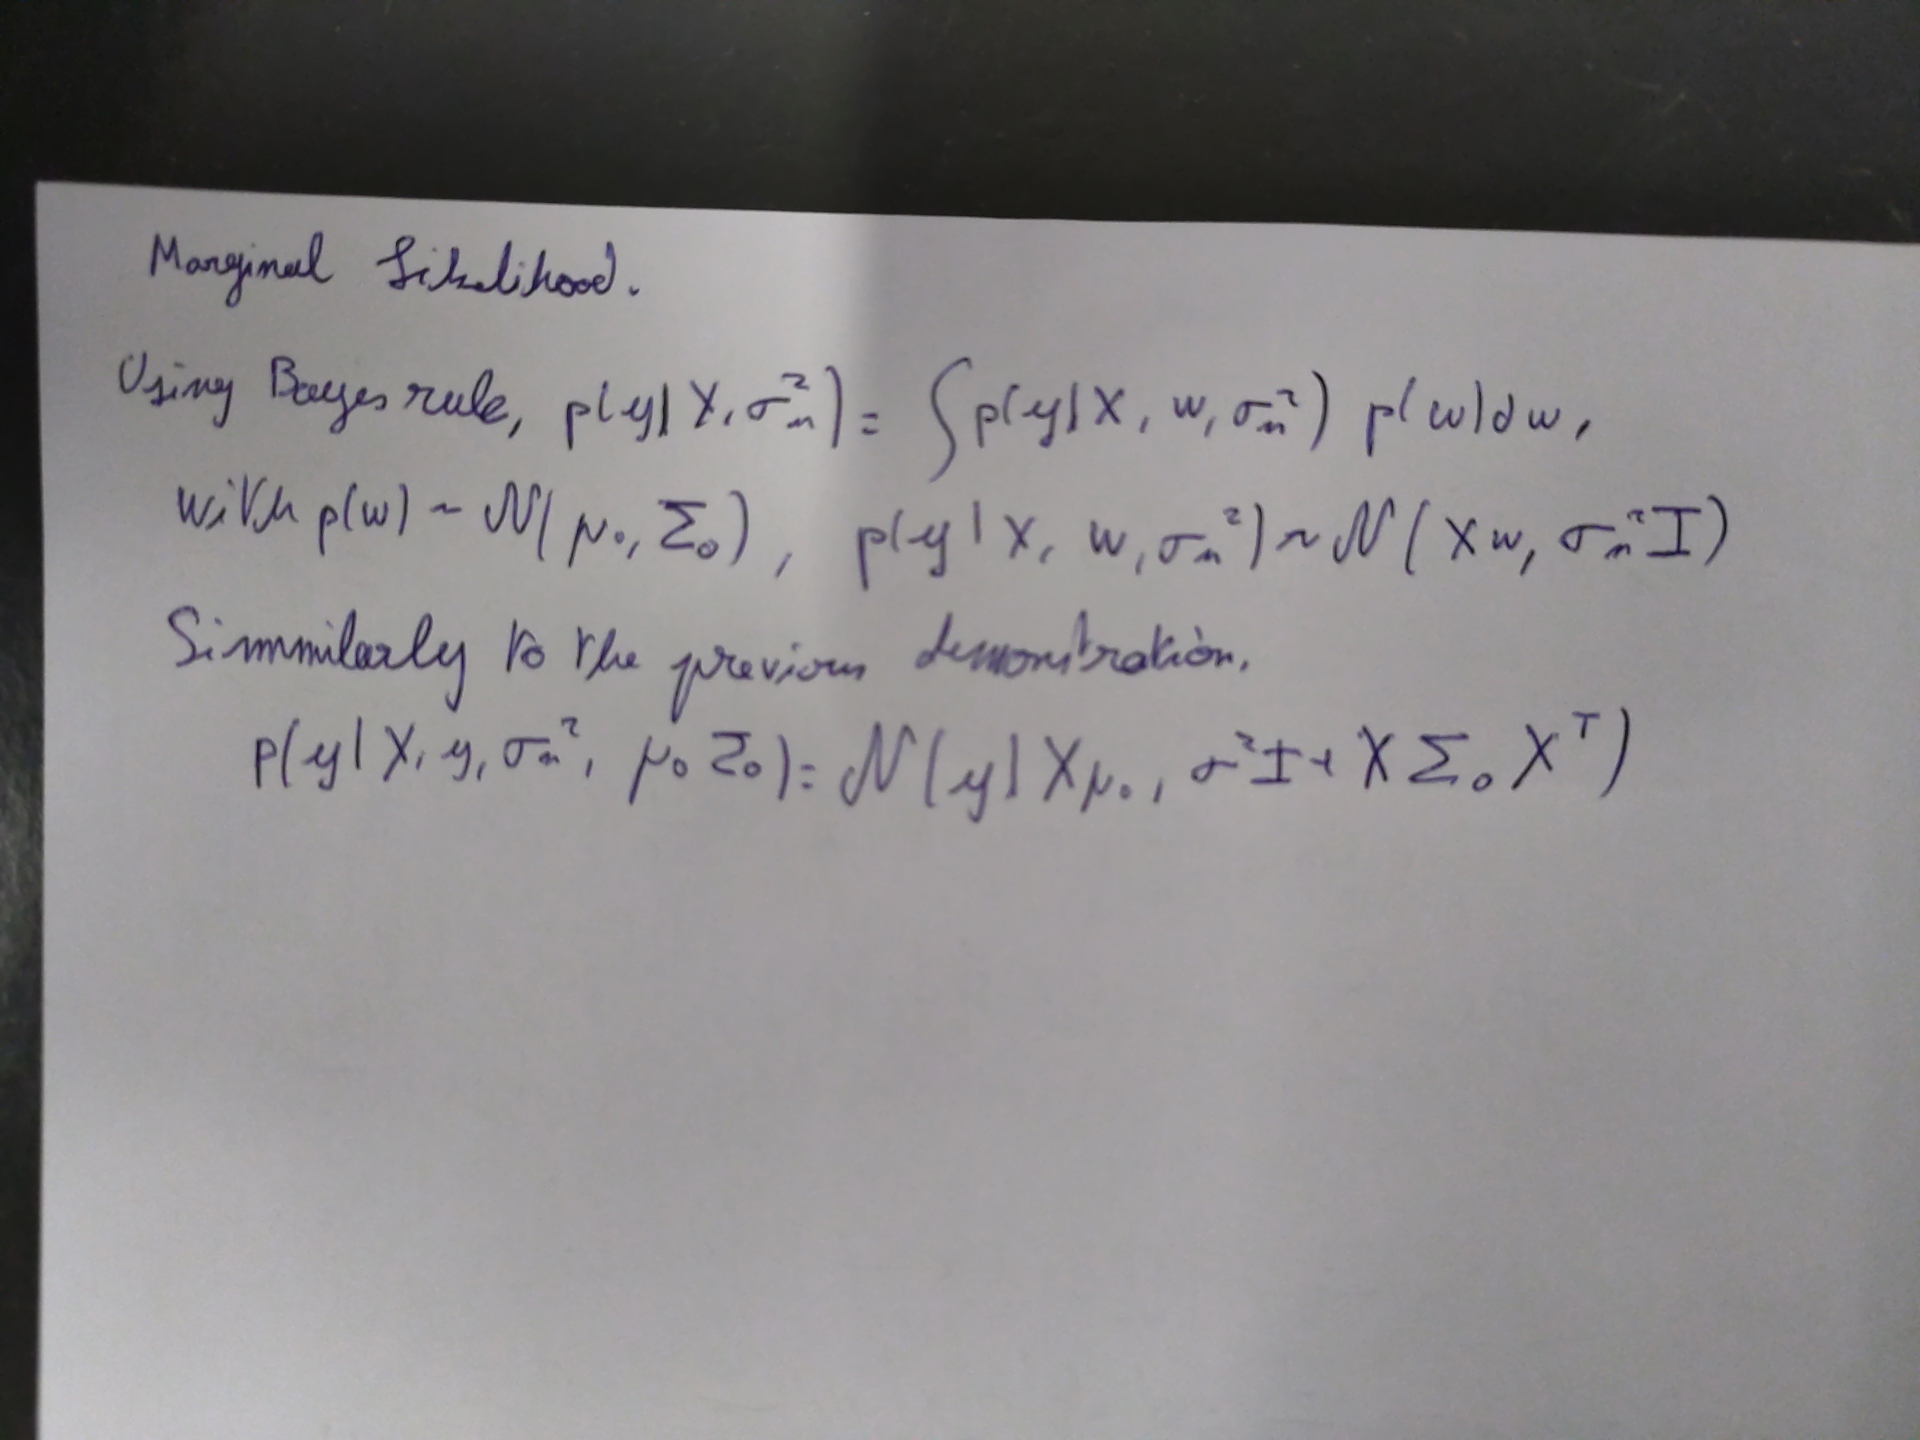 Marginal Likelihood.
Using Bayes rule, p(y|X, σₙ²) = ∫p(y|X, w, σₙ²) p(w)dw,
with p(w) ~ N(μ₀, Σ₀), p(y|X, w, σₙ²) ~ N(Xw, σₙ²I)
Simmilarly to the previous demonstration,
p(y|X, y, σₙ², μ₀ Σ₀) = N(y|Xμ₀, σ²I + XΣ₀Xᵀ)